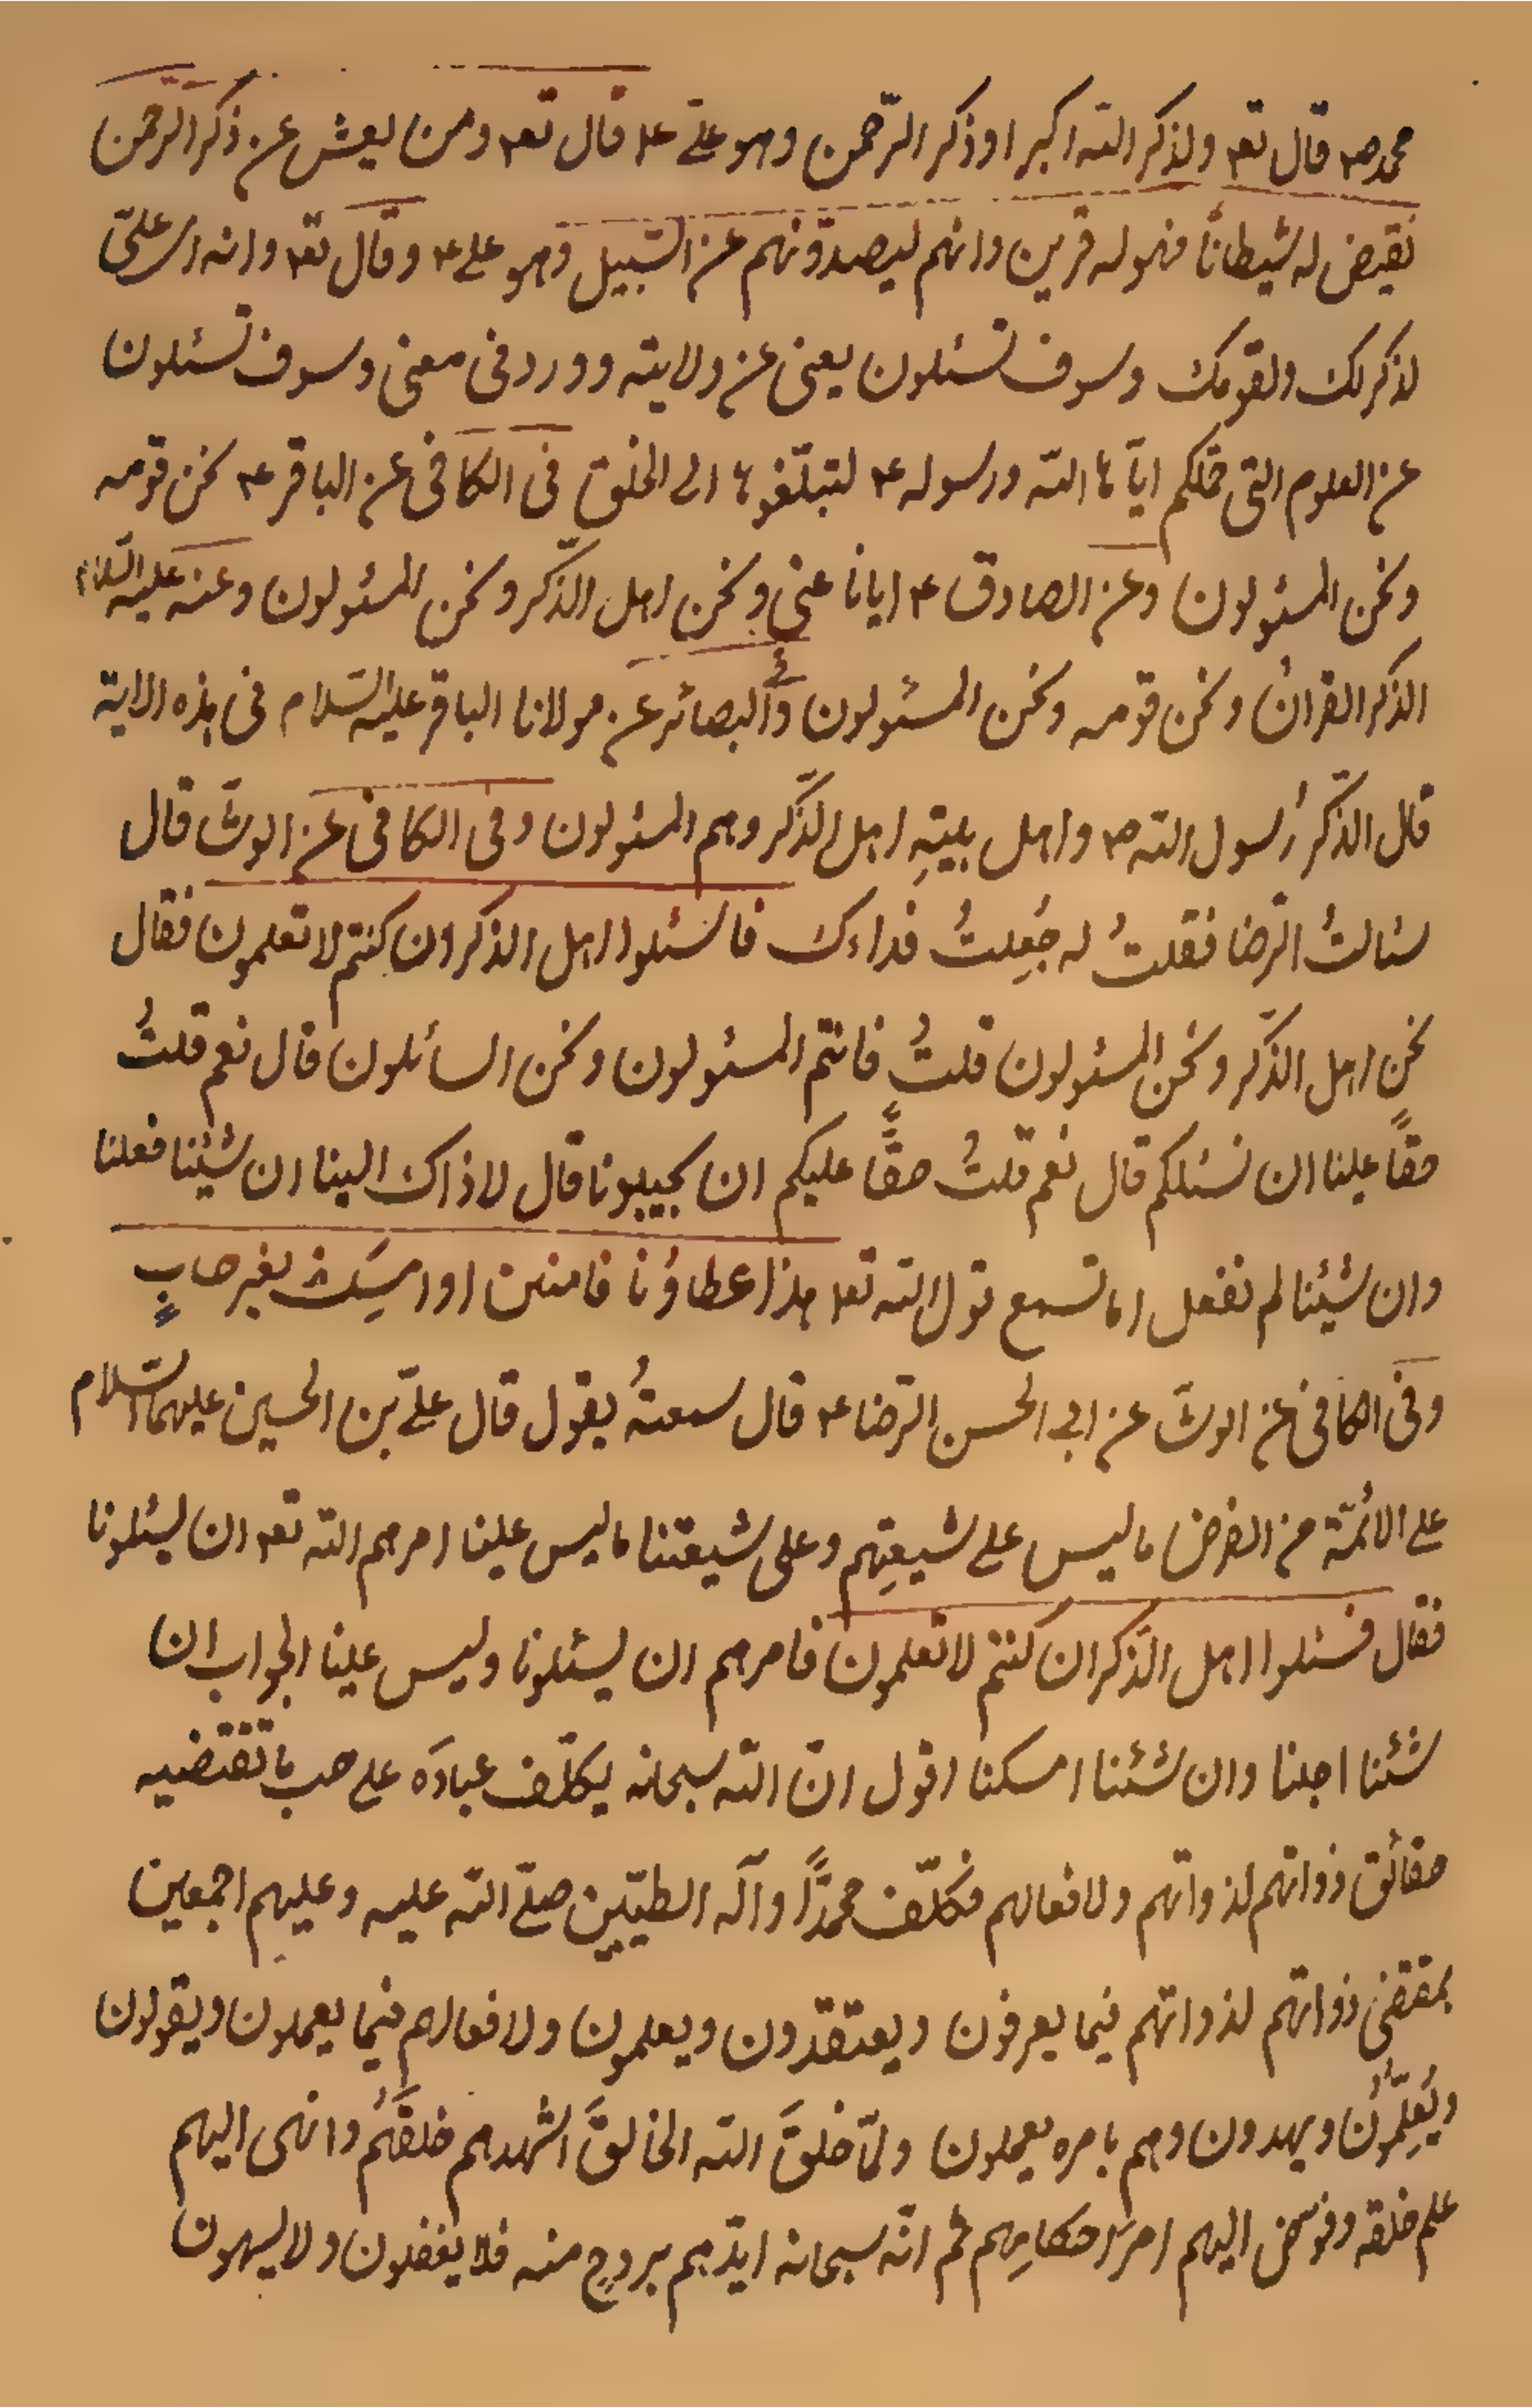 محمد ص قال تع ولذكر الله اكبر او ذكر الرّحمن وهو علىّ ع قال تع ومن يعش عن ذكر الرحمن
نقيض له شيطانًا فهو له قرين وانهم ليصدّونهم عن السّبيل وهو على ع وقال تع وانه اى علىّ
لذكر لك ولقومك وسوف تسئلون يعنى عن ولايته وورد فى معنى وسوف تسئلون
عن العلوم التى حمّلكم ايّاها الله ورسوله ع لتبلّغوها الى الخلق فى الكافى عن الباقر ع نحن قومه
ونحن المسئولون وعن الصادق ع ايانا عنى ونحن اهل الذّكر ونحن المسئولون وعنه عليه السّلام
الذكر القرانُ ونحن قومه ونحن المسئولون وفى البصائر عن مولانا الباقر عليه السّلام فى هذه الاية
قال الذّكرُ رسول الله ص واهل بيتِهِ اهل الذّكر وهم المسئولون وفى الكافى عن الوشّا قال
سئالتُ الرّضا فقلتُ له جُعِلتُ فداءك فاسئلوا اهل الذكر ان كنتم لا تعلمون فقال
نحن اهل الذّكر ونحن المسئولون قلتُ فانتم المسئولون ونحن السائلون قال نعم قلتُ
حقًا علينا ان نسئلكم قال نعم قلتُ حقًّا عليكم ان تجيبونا قال لا ذاك الينا ان شيئنا فعلنا
وان شيئنا لم نفعل اما تسمع قول الله تع هذا عطاؤنا فامنن او امسِك بغير حسابٍ
وفى الكافى عن الوشّا عن ابى الحسن الرّضا ع قال سمعتهُ يقول قال علىّ بن الحسين عليهما السّلام
على الائمّة من الفرض ما ليس على شيعتِهم وعلى شيعتنا ما ليس علينا امرهم الله تع ان يسئلونا
فقال فسئلوا اهل الذّكر ان كنتم لا تعلمون فامرهم ان يسئلونا وليس علينا الجواب ان
شئنا اجبنا وان شئنا امسكنا اقول انّ الله سبحانه يكلّف عبادَه على حسب ما تقتضيه
حقائق ذواتهم لذواتهم ولافعالهم فكلّف محمدًّا وآله الطيّبين صلّى الله عليه وعليهم اجمعين
بمقتضى ذواتهم لذواتهم فيما يعرفون ويعتقدون ويعلمون ولافعالهم فيما يعملون ويقولون
ويُعلِّمُون ويهدون وهم بامره يعملون ولمّا خلقَ الله الخالقَ اشهدهم خلقَهُم وانهى اليهم
علم خلقه وفوّض اليهم امر احكامِهم ثم انّه سبحانه ايّدهم بروحٍ منه فلا يغفلون ولا يسهون